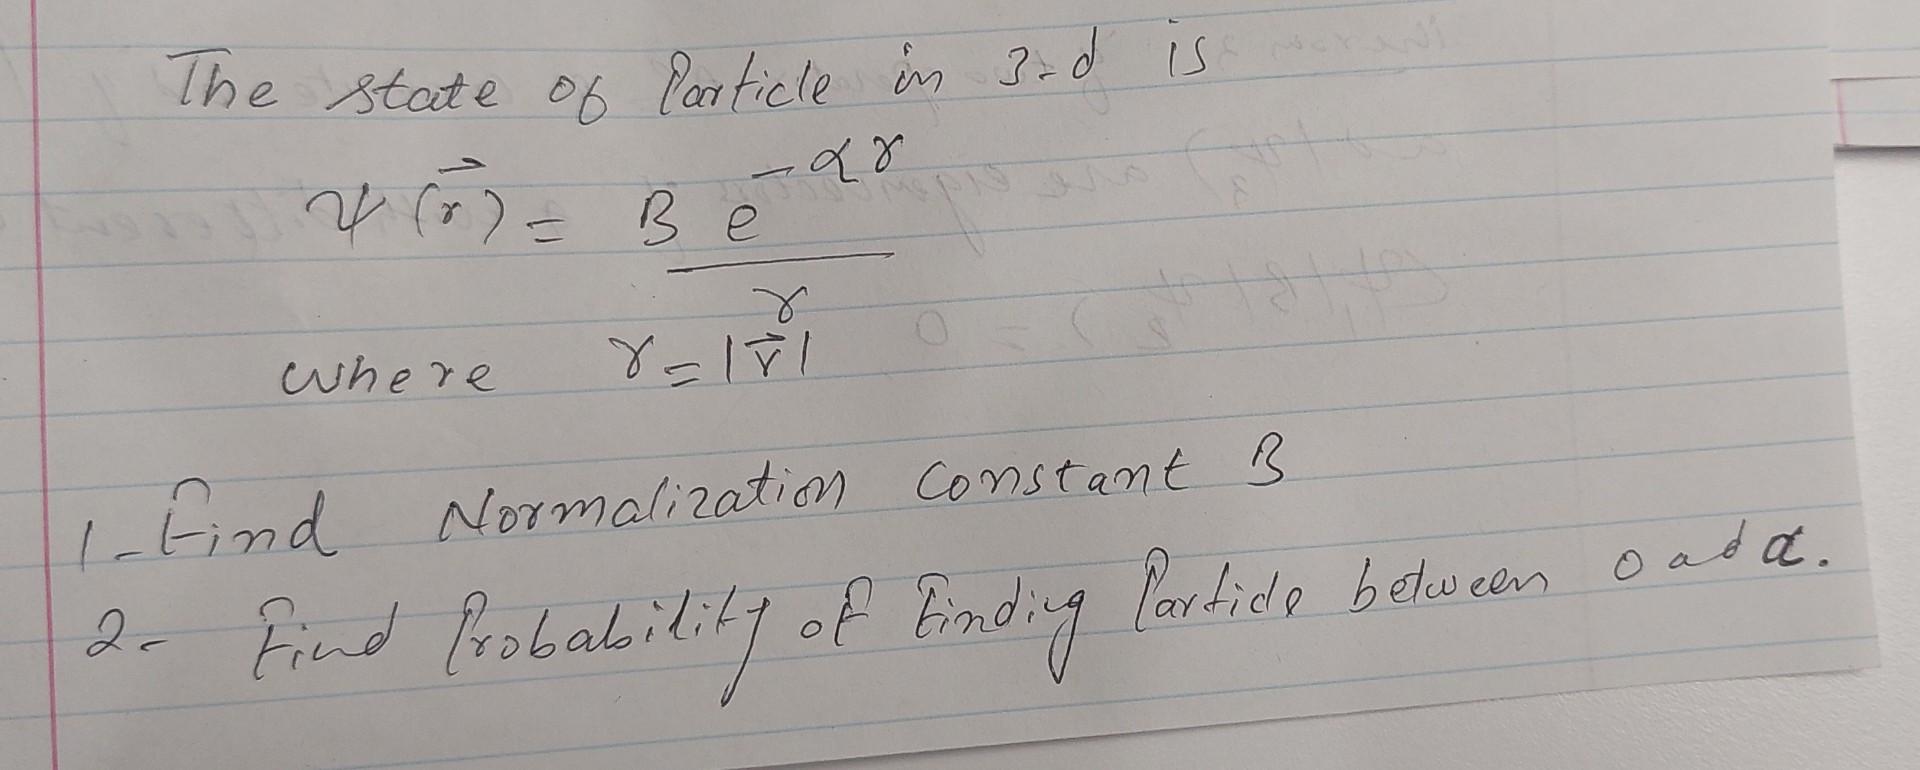 The state of Particle in 3-d is
ψ(r⃗) = B e^{-αr} / r
where r = |r⃗|
1- Find Normalization Constant B
2- Find Probability of Finding Particle between 0 ad α.